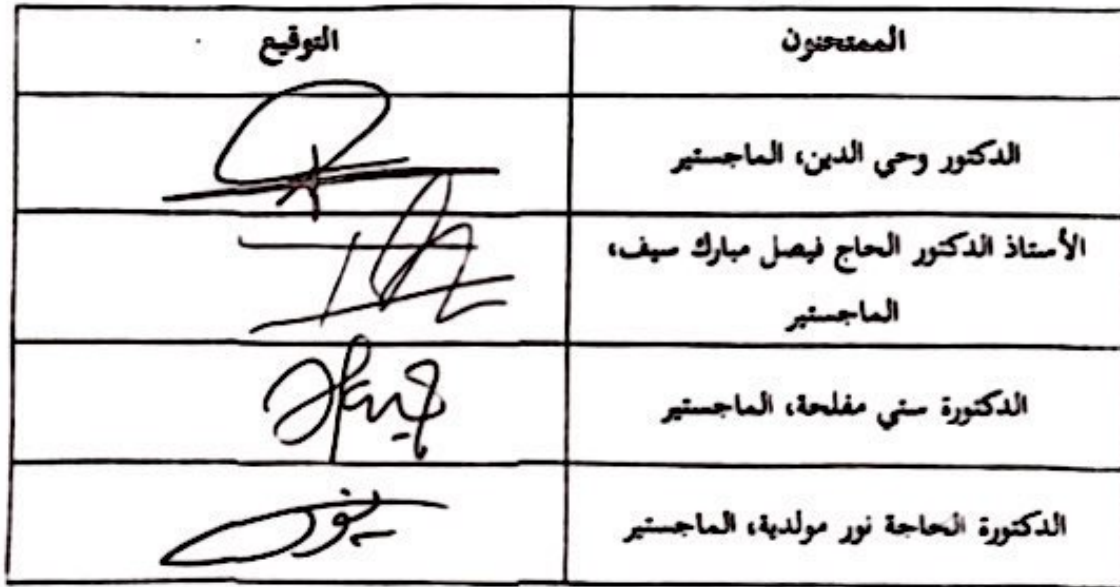 الممتحنون التوقيع
الدكتور وحي الدين، الماجستير
الأستاذ الدكتور الحاج فيصل مبارك سيف،
الماجستير
الدكتورة ستي مفلحة، الماجستير
الدكتورة الحاجة نور مولدية، الماجستير